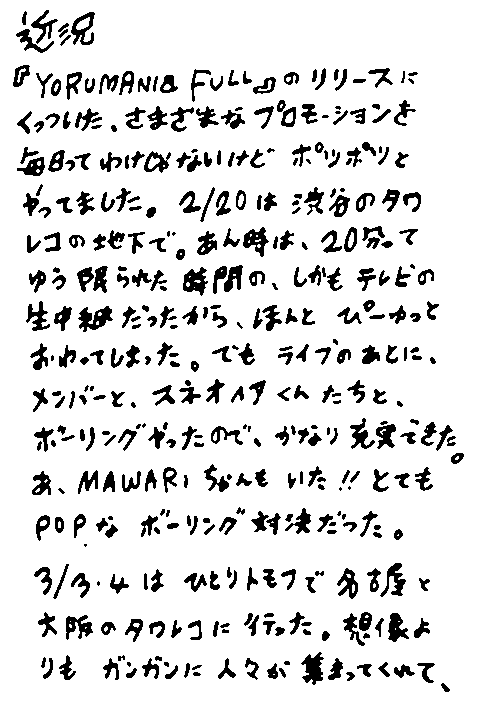 近況
『YORUMANIA FULL』のリリースに
くっついた、さまざまなプロモーションを
毎日ってわけじゃないけど ポツポツと
やってました。2/20は渋谷のタワ
レコの地下で。あん時は、20分って
ゆう限られた時間の、しかもテレビの
生中継だったから、ほんと ぴーかっと
おわってしまった。でも ライブのあとに、
メンバーと、スネオヘアくんたちと、
ボーリングやったので、かなり充実できた。
あ、MAWARIちゃんもいた!! とても
POPな ボーリング対決だった。
3/3・4は ひとりトモフで名古屋と
大阪のタワレコに行った。想像よ
りも ガンガンに人々が集まってくれて、